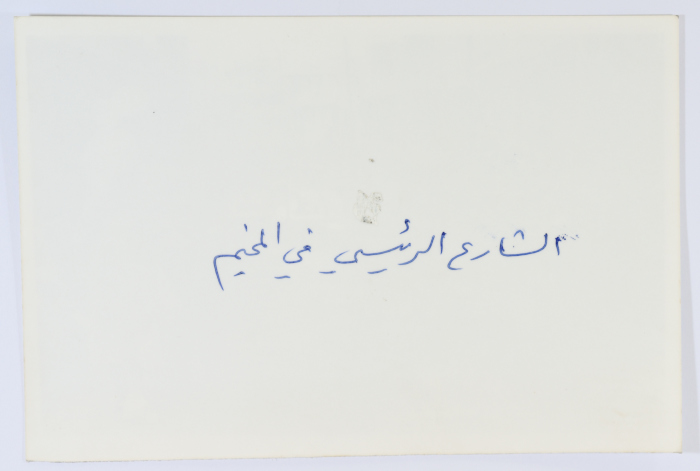 الشارع الرئيسي في المخيم